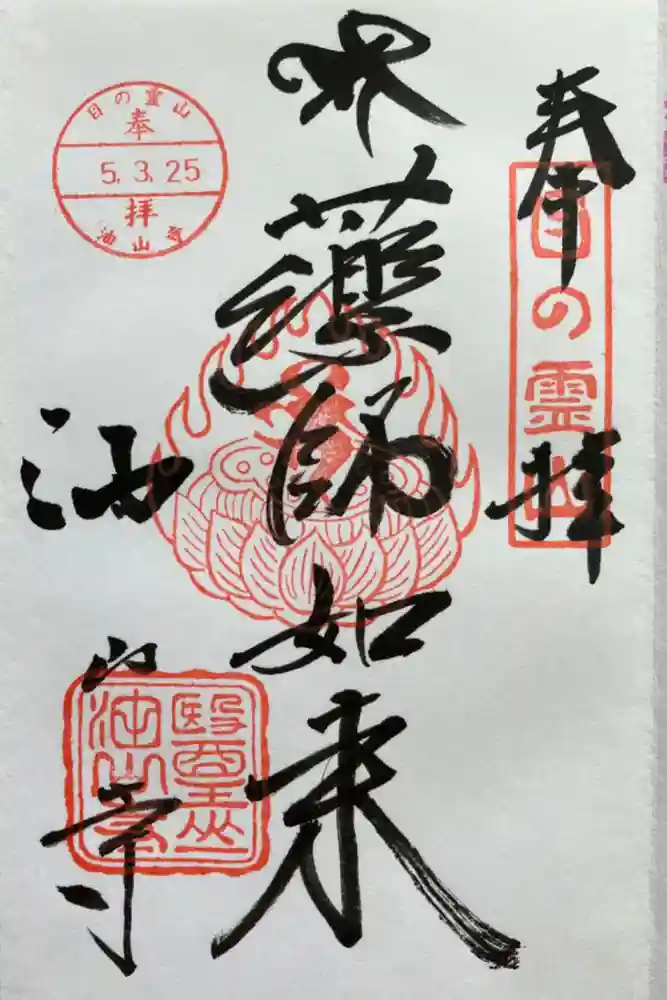 奉拝
目の霊山
薬師如来
油山寺
目の霊山
奉
5.3.25
拝
油山寺
醫王山
油山寺